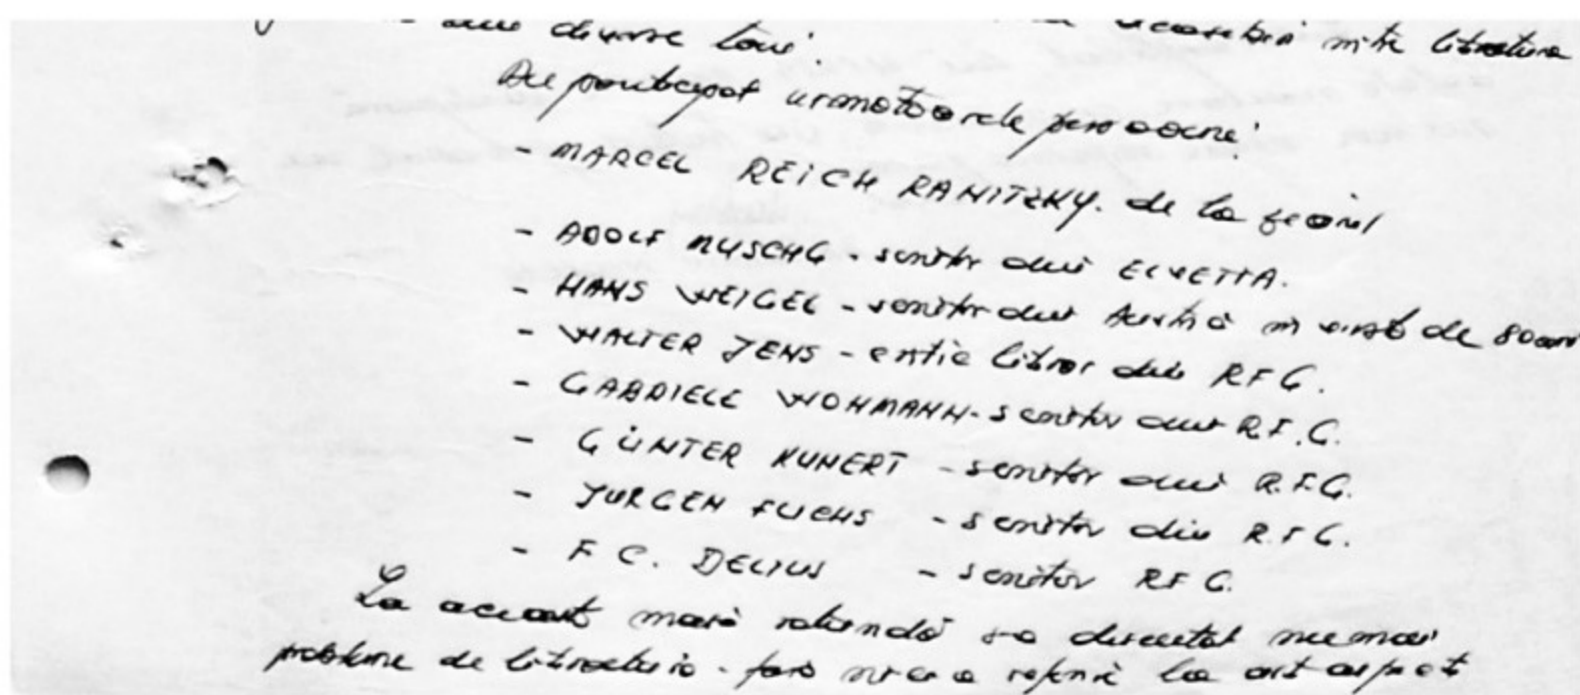 din diverse țări.
Au participat următoarele persoane:
- MARCEL REICH RANITZKY. de la
- ADOLF MUSCHG - scriitor din ELVETIA.
- HANS WEIGEL - scriitor din Austria în vîrstă de 80 ani
- WALTER JENS - critic literar din R.F.G.
- GABRIELE WOHMANN - scriitor din R.F.G.
- GÜNTER KUNERT - scriitor din R.F.G.
- JURGEN FUCHS - scriitor din R.F.G.
- F C. DELIUS - scriitor RFG.
La această masă rotundă s-a discutat numai
probleme de literatură - fără nici o referire la alt aspect